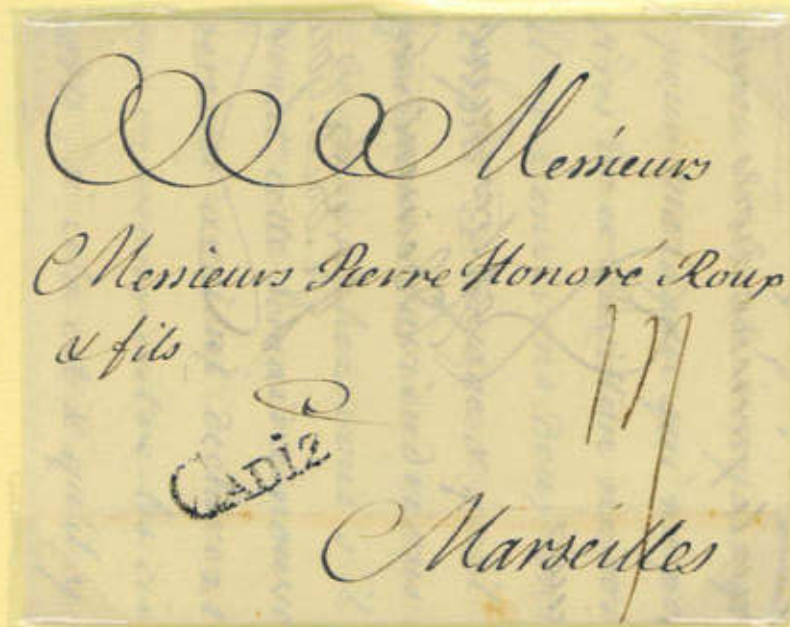 Messieurs
Messieurs Pierre Honoré Roux
& fils
CADIZ
Marseilles